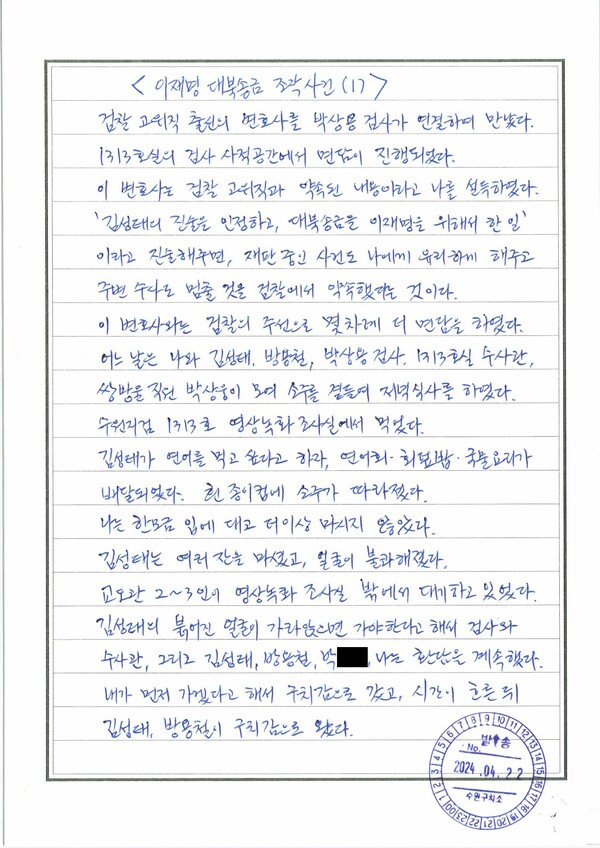 < 이재명 대북송금 조작사건 (1) >
검찰 고위직 출신의 변호사를 박상용 검사가 연결하여 만났다.
1313호실의 검사 사적공간에서 면담이 진행되었다.
이 변호사는 검찰 고위직과 약속된 내용이라고 나를 설득하였다.
'김성태의 진술을 인정하고, 대북송금을 이재명을 위해서 한 일'
이라고 진술해주면, 재판 중인 사건도 나에게 유리하게 해주고
주변 수사도 멈출 것을 검찰에서 약속했다는 것이다.
이 변호사와는 검찰의 주선으로 몇차례 더 면담을 하였다.
어느 날은 나와 김성태, 방용철, 박상용 검사, 1313호실 수사관,
쌍방울 직원 박상웅이 모여 소주를 곁들여 저녁식사를 하였다.
수원지검 1313호 영상녹화 조사실에서 먹었다.
김성태가 연어를 먹고 싶다고 하자, 연어회·회덮밥·국물요리가
배달되었다. 흰 종이컵에 소주가 따라졌다.
나는 한모금 입에 대고 더이상 마시지 않았다.
김성태는 여러 잔을 마셨고, 얼굴이 불과해졌다.
교도관 2~3인이 영상녹화 조사실 밖에서 대기하고 있었다.
김성태의 붉어진 얼굴이 가라앉으면 가야한다고 해서 검사와
수사관, 그리고 김성태, 방용철, 박, 나는 환담을 계속했다.
내가 먼저 가겠다고 해서 구치감으로 갔고, 시간이 흐른 뒤
김성태, 방용철이 구치감으로 왔다.
발송
No.
2024.04.22
수원구치소